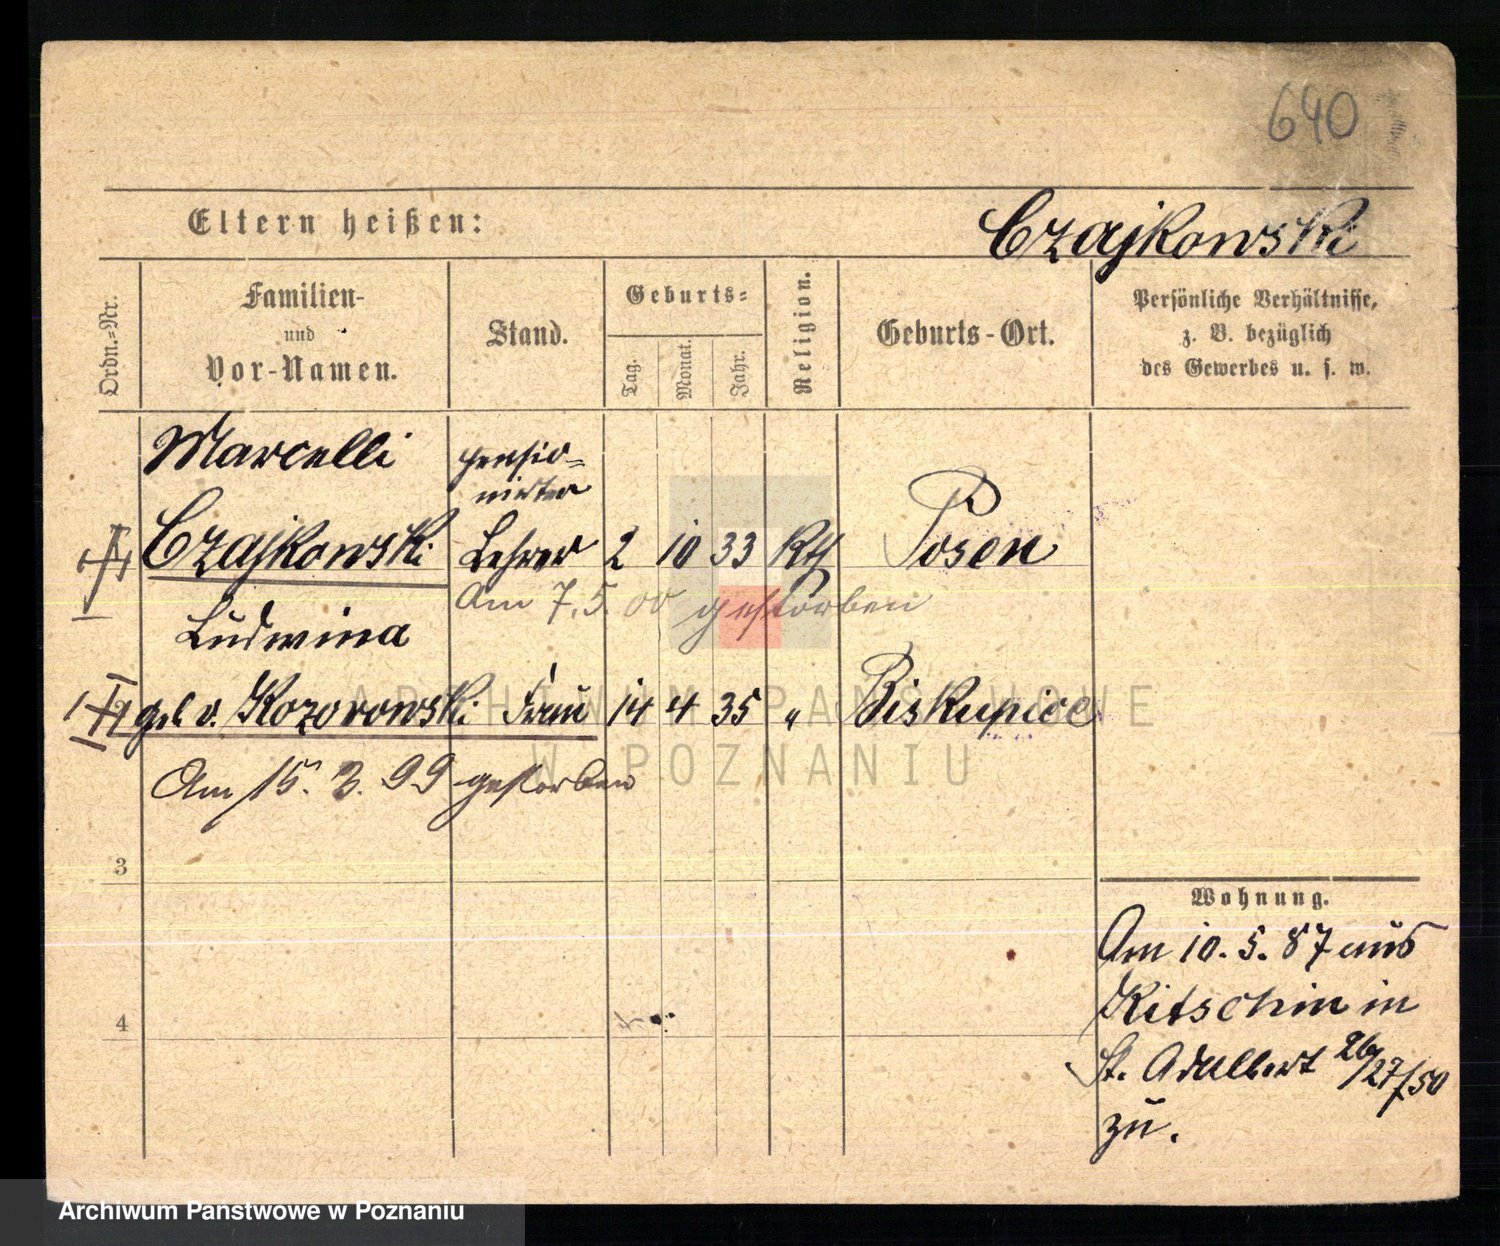 640
Eltern heißen:
Czajkowski
Ordn.-Nr.
Familien-
und
Vor-Namen.
Stand.
Geburts-
Tag.
Monat.
Jahr.
Religion.
Geburts-Ort.
Persönliche Verhältnisse,
z. B. bezüglich
des Gewerbes u. s. w.
Marcelli
pensio=
nirter
Czajkowski Lehrer 2 10 33 Kth Posen
Am 7. 5. 00 gestorben
Ludwina
geb v. Kozorowski Frau 14 4 35 " Biskupice
Am 15. 3. 99 gestorben
3
4
Wohnung.
Am 10. 5. 87 aus
Kitschin in
St. Adalbert 26/27/50
zu.
ARCHIWUM PAŃSTWOWE
W POZNANIU
Archiwum Państwowe w Poznaniu